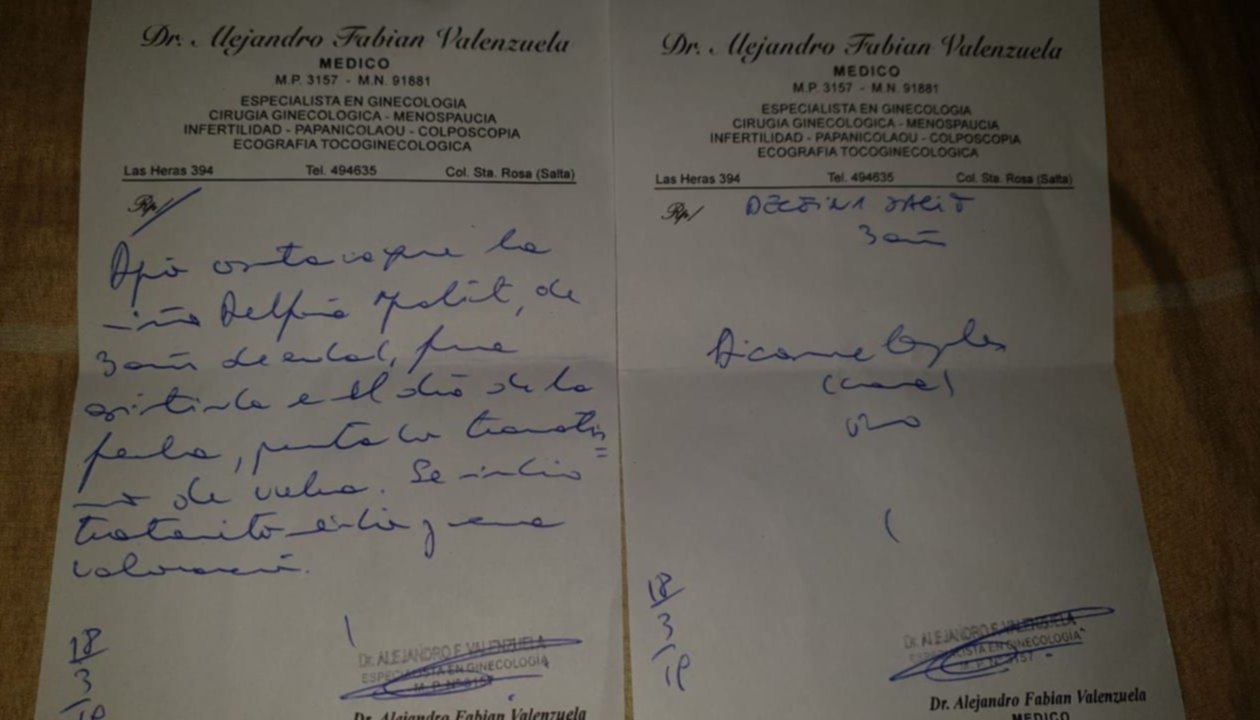 Dr. Alejandro Fabian Valenzuela
MEDICO
M.P. 3157 - M.N. 91881
ESPECIALISTA EN GINECOLOGIA
CIRUGIA GINECOLOGICA - MENOSPAUCIA
INFERTILIDAD - PAPANICOLAOU - COLPOSCOPIA
ECOGRAFIA TOCOGINECOLOGICA
Las Heras 394 Tel. 494635 Col. Sta. Rosa (Salta)
Rp/
que la
niña Delfina, de
3 años de edad, fue
asistida en el día de la
fecha, traumatis
mo de vulva. Se indico
tratamiento y
valoración.
18
3
19
Dr. ALEJANDRO F. VALENZUELA
ESPECIALISTA EN GINECOLOGIA
M. P. Nº 3157
Dr. Alejandro Fabian Valenzuela
Dr. Alejandro Fabian Valenzuela
MEDICO
M.P. 3157 - M.N. 91881
ESPECIALISTA EN GINECOLOGIA
CIRUGIA GINECOLOGICA - MENOSPAUCIA
INFERTILIDAD - PAPANICOLAOU - COLPOSCOPIA
ECOGRAFIA TOCOGINECOLOGICA
Las Heras 394 Tel. 494635 Col. Sta. Rosa (Salta)
Rp/
3 años
(crema)
uno
18
3
19
Dr. ALEJANDRO F. VALENZUELA
ESPECIALISTA EN GINECOLOGIA
M. P. Nº 3157
Dr. Alejandro Fabian Valenzuela
MEDICO